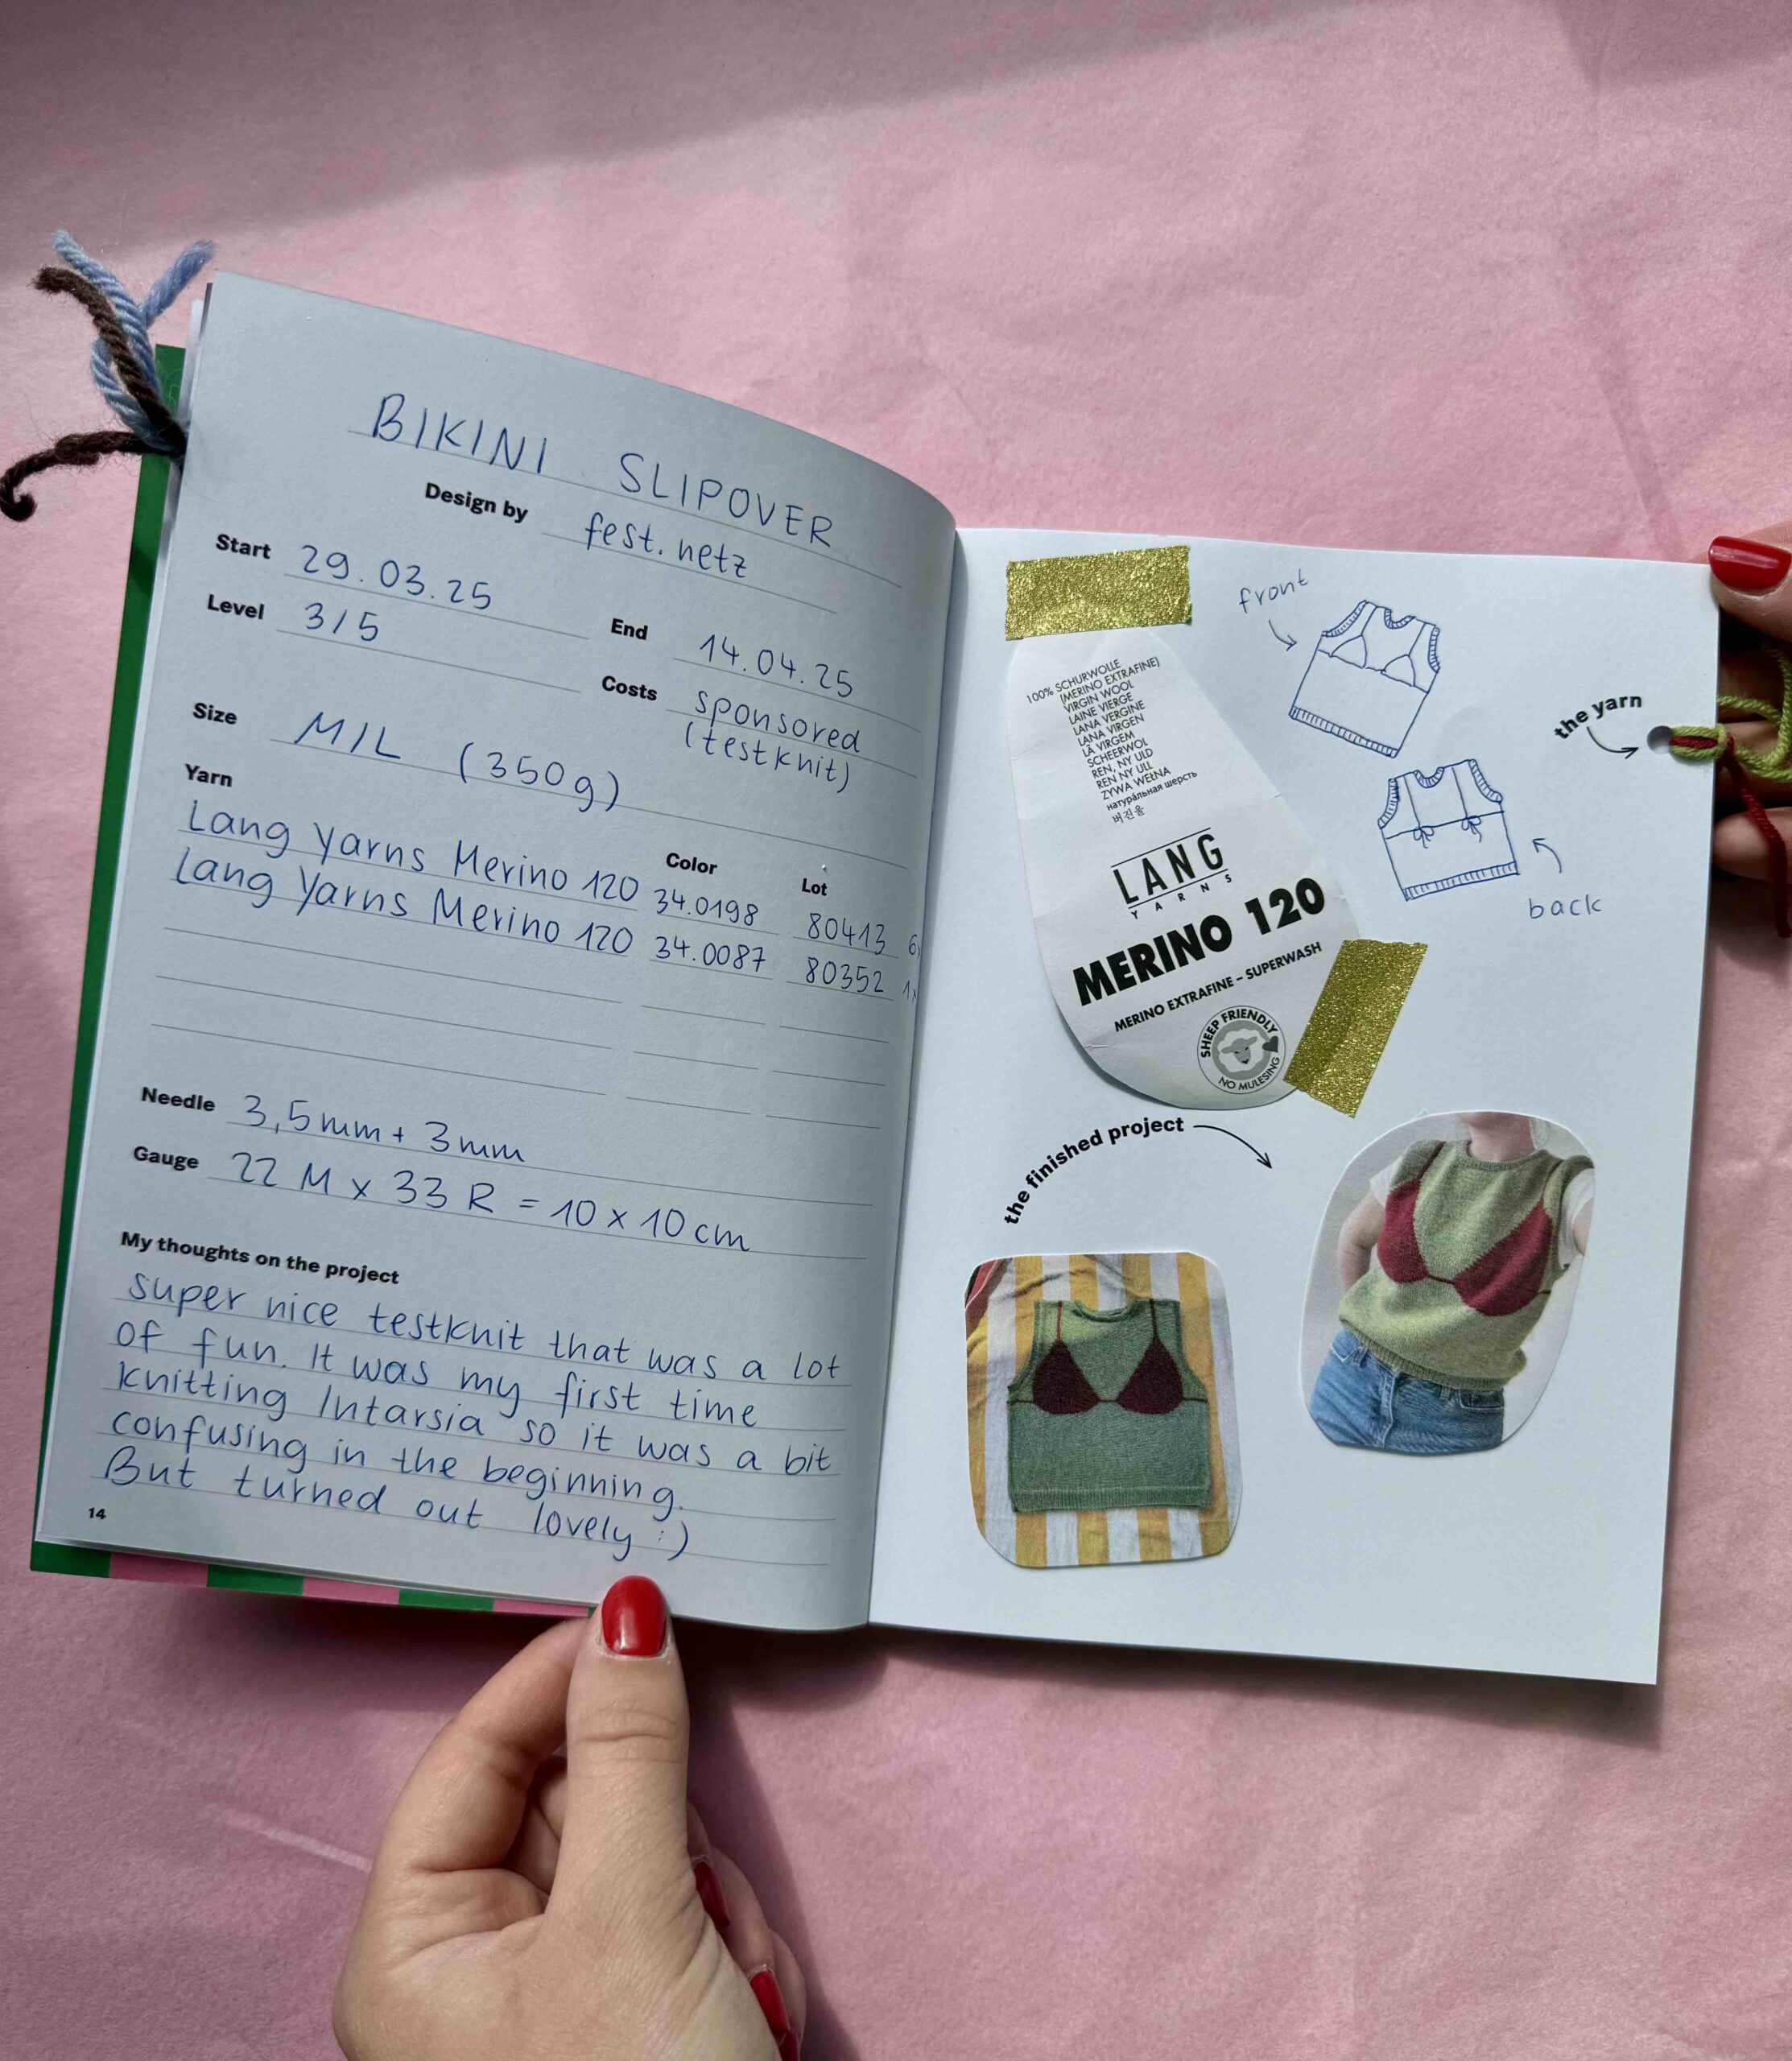 BIKINI SLIPOVER
Design by fest.netz
Start 29.03.25
End 14.04.25
Level 3/5
Costs sponsored
(testknit)
Size M/L (350g)
Yarn Color Lot
Lang Yarns Merino 120 34.0198 80413 6x
Lang Yarns Merino 120 34.0087 80352 1x
Needle 3,5mm + 3mm
Gauge 22 M x 33 R = 10 x 10 cm
My thoughts on the project
super nice testknit that was a lot
of fun. It was my first time
knitting Intarsia so it was a bit
confusing in the beginning.
But turned out lovely :)
14
100% SCHURWOLLE
(MERINO EXTRAFINE)
VIRGIN WOOL
LAINE VIERGE
LANA VERGINE
LANA VIRGEN
LÃ VIRGEM
SCHEERWOL
REN, NY ULD
REN NY ULL
ZYWA WEŁNA
натуральная шерсть
버진울
LANG
YARNS
MERINO 120
MERINO EXTRAFINE – SUPERWASH
SHEEP FRIENDLY
NO MULESING
front
the yarn
back
the finished project